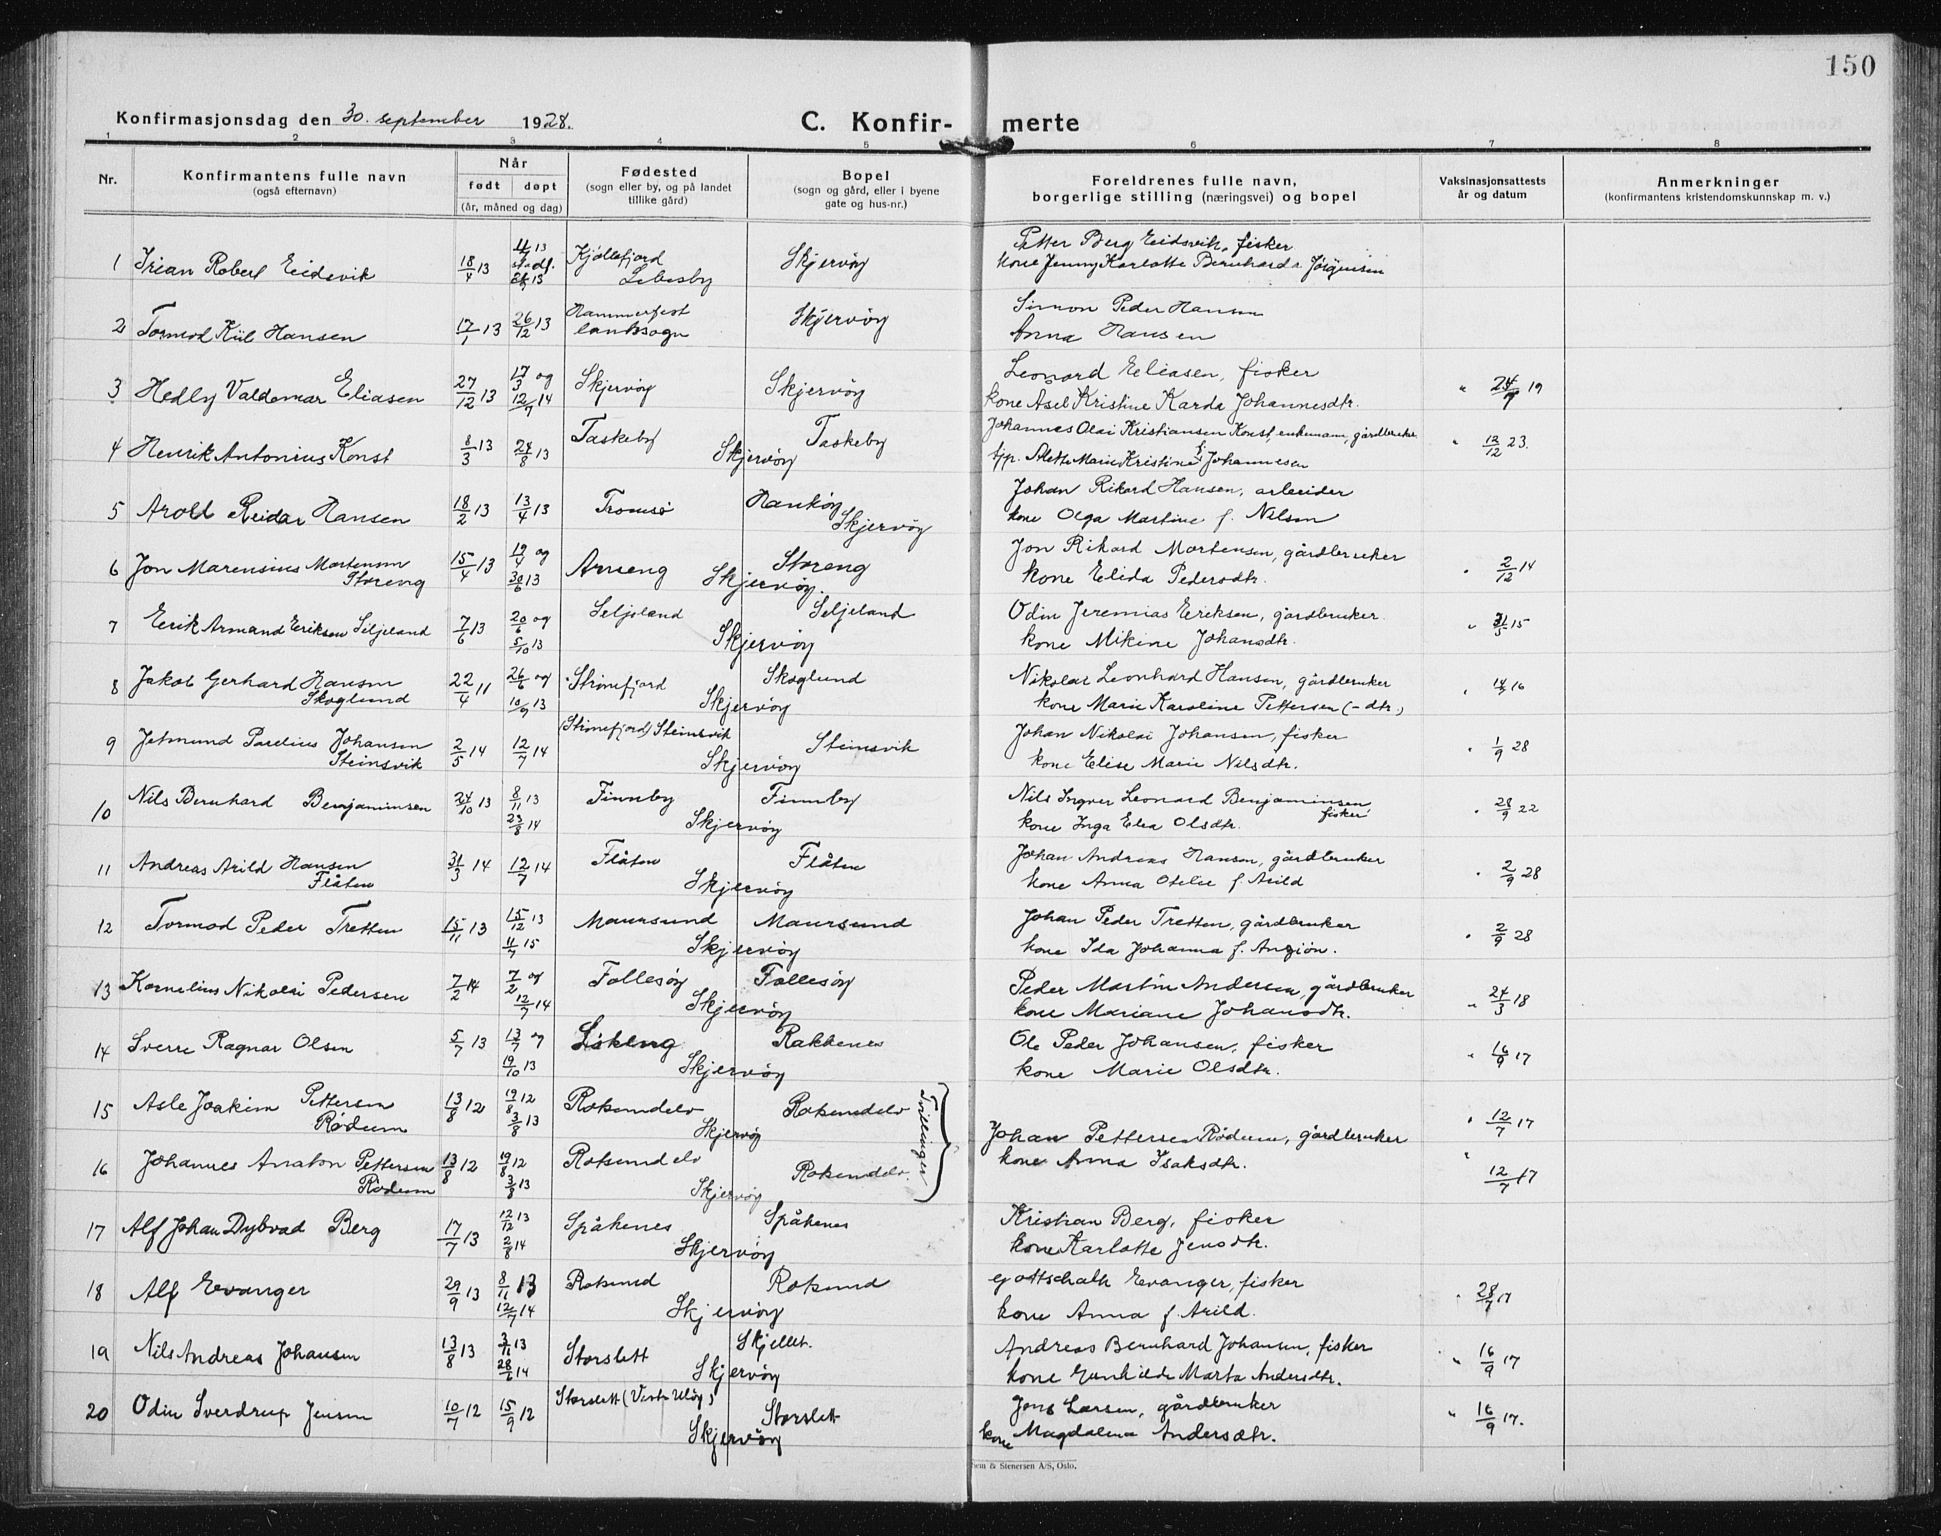 150
Konfirmasjonsdag den 30. september 1928. C. Konfir- merte
1 2 3 4 5 6 7 8
Nr. Konfirmantens fulle navn (også efternavn) Når født døpt (år, måned og dag) Fødested (sogn eller by, og på landet tillike gård) Bopel (sogn og gård, eller i byene gate og hus-nr.) Foreldrenes fulle navn, borgerlige stilling (næringsvei) og bopel Vaksinasjonsattests år og datum Anmerkninger (konfirmantens kristendomskunnskap m. v.)
1 Robert Eidsvik 18/4 13 Kjøllefjord Skjervöy Petter Berg Eidsvik, fisker
Lebesby kone Jenny Karlotte Bernharda Jörgensen
2 Tormod Kiil Hansen 17/1 13 26/12 13 Hammerfest Skjervöy Simon Peder Hansen
landsogn Anna Hansen
3 Hedly Valdemar Eliasen 27/12 13 17/3 og 12/7 14 Skjervöy Skjervöy Leonard Eliasen, fisker " 24/7 19
kone Asel Kristine Karda Johannesdtr.
4 Henrik Antonius Konst 8/3 13 24/8 13 Taskeby Taskeby Johannes Olai Kristiansen Konst, enkemann, gårdbruker " 12/12 23.
Skjervöy Alette Marie Kristine f. Johannesen
5 Arold Reidar Hansen 18/2 13 13/4 13 Tromsö Hauköy Johan Rikard Hansen, arbeider
Skjervöy kone Olga Martine f. Nilsen
6 Jon Marensius Mortensen 15/4 13 19/4 og 30/6 13 Arneng Storeng Jon Rikard Mortensen, gårdbruker " 2/12 14
Storeng Skjervöy. kone Elida Pedersdtr.
7 Erik Armand Eriksen Seljeland 7/6 13 20/6 og 5/10 13 Seljeland Seljeland Odin Jeremias Eriksen, gårdbruker. " 31/5 15
Skjervöy kone Mikine Johansdtr.
8 Jakob Gerhard Hansen 22/4 11 26/6 og 10/9 13 Skoglund Nikolai Leonhard Hansen, gårdbruker " 14/9 16
Skoglund Skjervöy kone Marie Karoline Pettersen (-dtr.)
9 Jetmund Parelius Johansen 2/5 14 12/7 14 Steinsvik Steinsvik Johan Nikolai Johansen, fisker " 1/9 28
Steinsvik Skjervöy kone Elise Marie Nilsdtr.
10 Nils Bernhard Benjaminsen 24/10 13 8/11 13 23/8 14 Finnby Finnby Nils Ingver Leonard Benjaminsen, fisker " 28/9 22
Skjervöy kone Inga Elea Olsdtr.
11 Andreas Arild Hansen 31/3 14 12/7 14 Flåten Flåten Johan Andreas Hansen, gårdbruker " 2/9 28
Flåten Skjervöy kone Anna Otelie f. Arild
12 Tormod Peder Tretten 15/11 13 15/12 13 11/7 15 Maursund Maursund Johan Peder Tretten, gårdbruker " 2/9 28
Skjervöy kone Ida Johanna f. Anziön.
13 Kornelius Nikolai Pedersen 7/2 14 7/2 og 12/7 14 Follesöy Follesöy Peder Martin Andersen, gårdbruker " 24/3 18
Skjervöy kone Mariane Johansdtr.
14 Sverre Ragnar Olsen 5/7 13 13/7 og 19/10 13 Rakkenes Ole Peder Johansen, fisker " 16/9 17
Skjervöy kone Marie Olsdtr.
15 Asle Joakim Pettersen 13/8 12 19/8 12 3/8 13 Roksundelv Roksundelv Tvillinger " 12/7 17
Rödum Skjervöy Johan Pettersen Rödum, gårdbruker
16 Johannes Anaton Pettersen 13/8 12 19/8 12 3/8 13 Roksundelv Roksundelv. kone Anna Isaksdtr. " 12/7 17
Rödum Skjervöy
17 Alf Johan Dybvad Berg 17/7 13 12/12 13 2/8 14 Spåkenes Spåkenes Kristian Berg, fisker
Skjervöy kone Karlotte Jensdtr.
18 Alf Evanger 29/9 13 8/11 13 12/7 14 Roksund Roksund Gottschalk Evanger, fisker " 28/7 17
Skjervöy kone Anna f. Arild.
19 Nils Andreas Johansen 13/8 13 3/11 13 28/6 14 Storslett Skjellet. Andreas Bernhard Johansen, fisker " 16/9 17
Skjervöy kone Gunhilde Marta Andersdtr.
20 Odin Sverdrup Jensen 10/7 12 15/9 12 Storslett (Vestr Ulöy) Storslett Jens Larsen, gårdbruker " 16/9 17.
Skjervöy kone Magdalena Andersdtr.
& Stenersen A/S, Oslo.